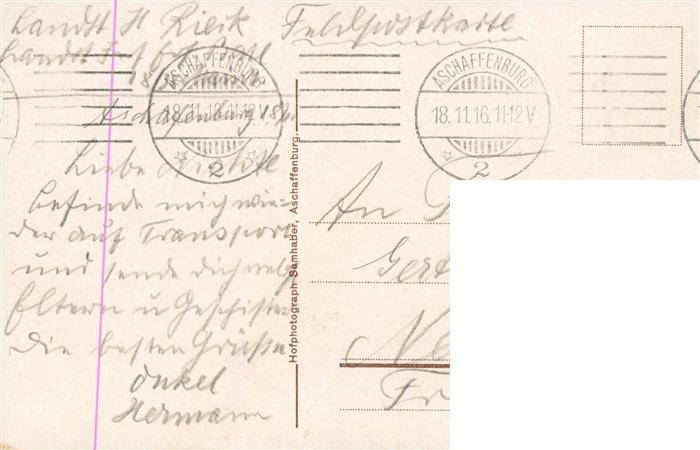 Landst H Rieck Feldpostkarte
Landst
ASCHAFFENBURG
18.11.16.11-12 V
2
ASCHAFFENBURG
18.11.16.11-12 V
2
Aschaffenburg 18/11
Liebe
befinde mich wie-
der auf Transport
und sende Dich nebst
Eltern u Geschister
die besten Grüße
Onkel
Hermann
Hofphotograph Samhaber, Aschaffenburg.
An
Gert
Ne
Fr